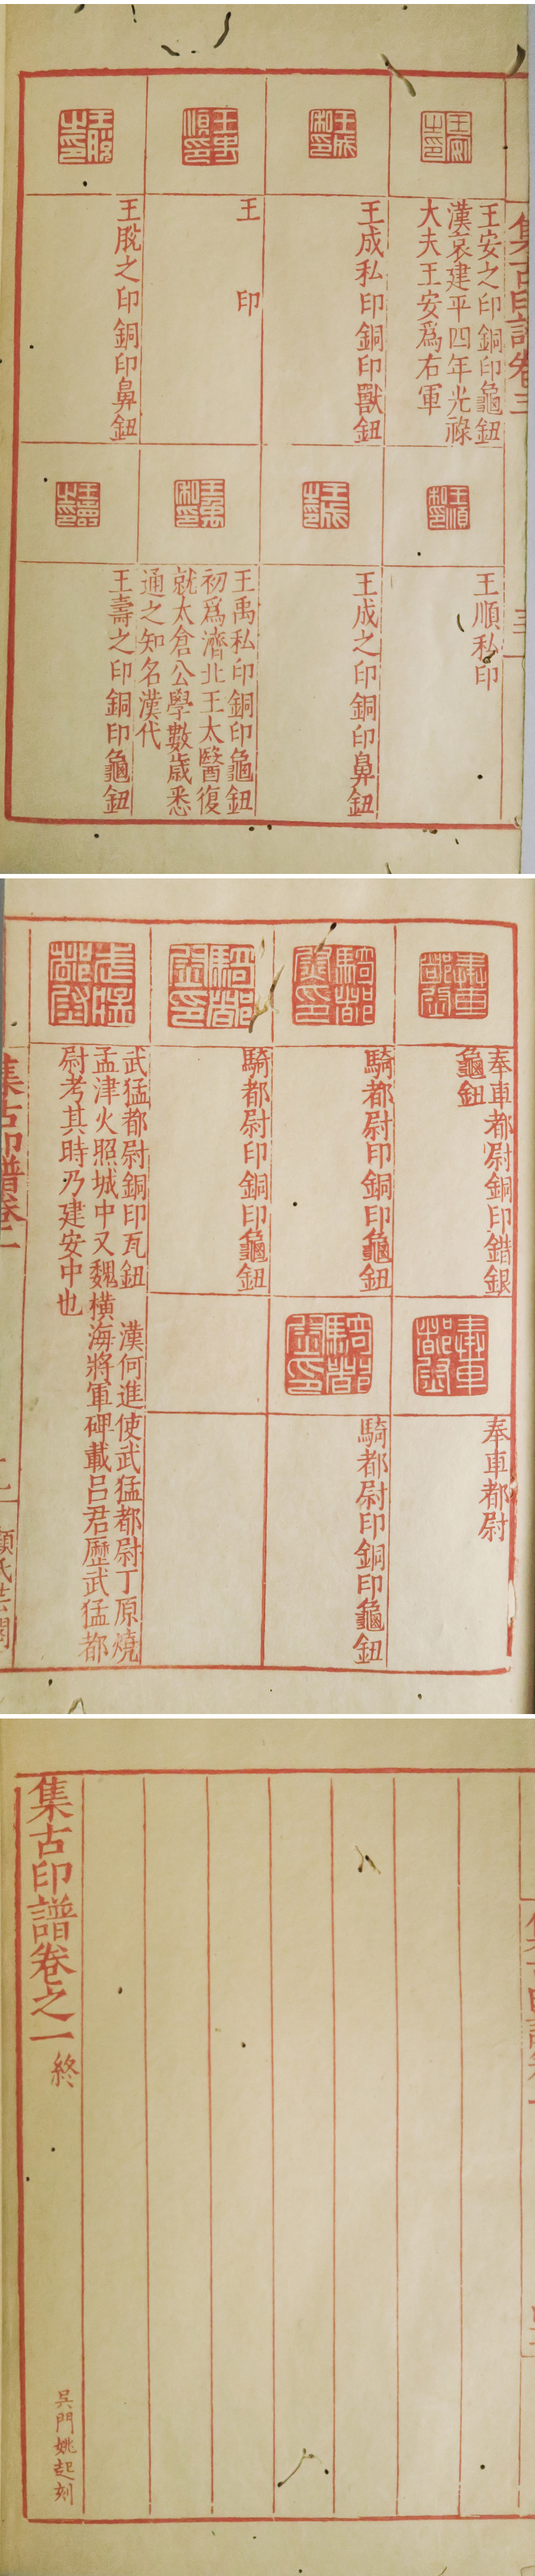 集古印譜卷三
王安之印銅印龜鈕
漢哀建平四年光祿
大夫王安爲右軍
王成私印銅印獸鈕
王 印
王脫之印銅印鼻鈕
王順私印
王成之印銅印鼻鈕
王禹私印銅印龜鈕
初爲濟北王太醫復
就太倉公學數歲悉
通之知名漢代
王壽之印銅印龜鈕
奉車都尉銅印錯銀
龜鈕
騎都尉印銅印龜鈕
騎都尉印銅印龜鈕
奉車都尉
騎都尉印銅印龜鈕
武猛都尉銅印瓦鈕 漢何進使武猛都尉丁原燒
孟津火照城中又魏橫海將軍碑載呂君歷武猛都
尉考其時乃建安中也
集古印譜卷二
顧氏芸閣
集古印譜卷之一終
吳門姚起刻